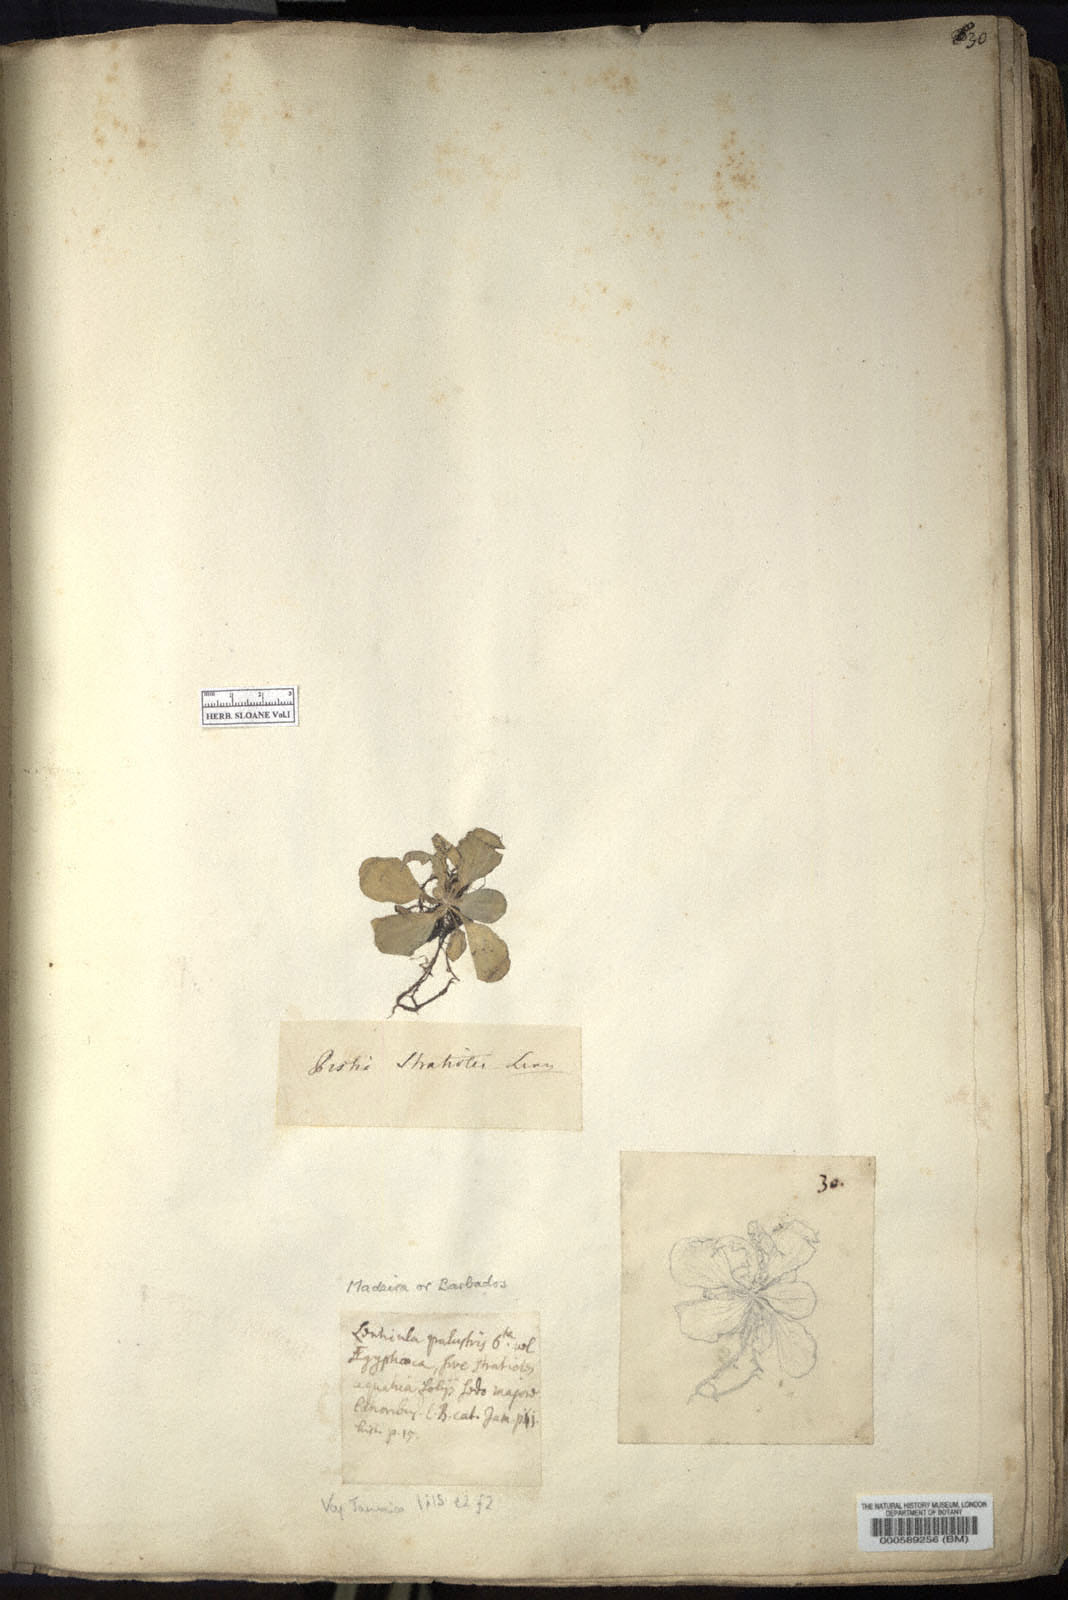 30
mm 1 2 3
HERB. SLOANE Vol.I
Pistia Stratiotes Linn
30.
Madeira or Barbados
Lenticula palustris 6ta. vel
Ægyptiaca, sive stratiotes
aquatica folijs sedo majore
latioribus. C.B. cat. Jam. p.
hist. p. 15.
Voy Jamaica 1:15 t2 f2
THE NATURAL HISTORY MUSEUM, LONDON
DEPARTMENT OF BOTANY
000589256 (BM)